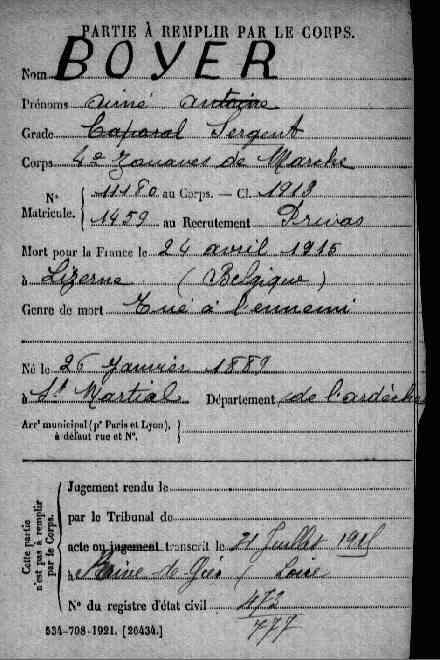 PARTIE À REMPLIR PAR LE CORPS.
Nom BOYER
Prénoms aimé antoine
Grade Caporal Sergent
Corps 4e Zouaves de Marche
N° Matricule. 11180 au Corps. — Cl. 1919
1459 au Recrutement Privas
Mort pour la France le 24 avril 1915
à Lizerne (Belgique)
Genre de mort Tué à l'ennemi
Né le 26 Janvier 1889
à St Martial Département de l'ardèche
Arrt municipal (pr Paris et Lyon),
à défaut rue et N°.
Cette partie
n'est pas à remplir
par le Corps.
Jugement rendu le
par le Tribunal de
acte ou jugement transcrit le 21 Juillet 1915
à de Gier (Loire
N° du registre d'état civil 473
777
534-708-1921. [26434.]